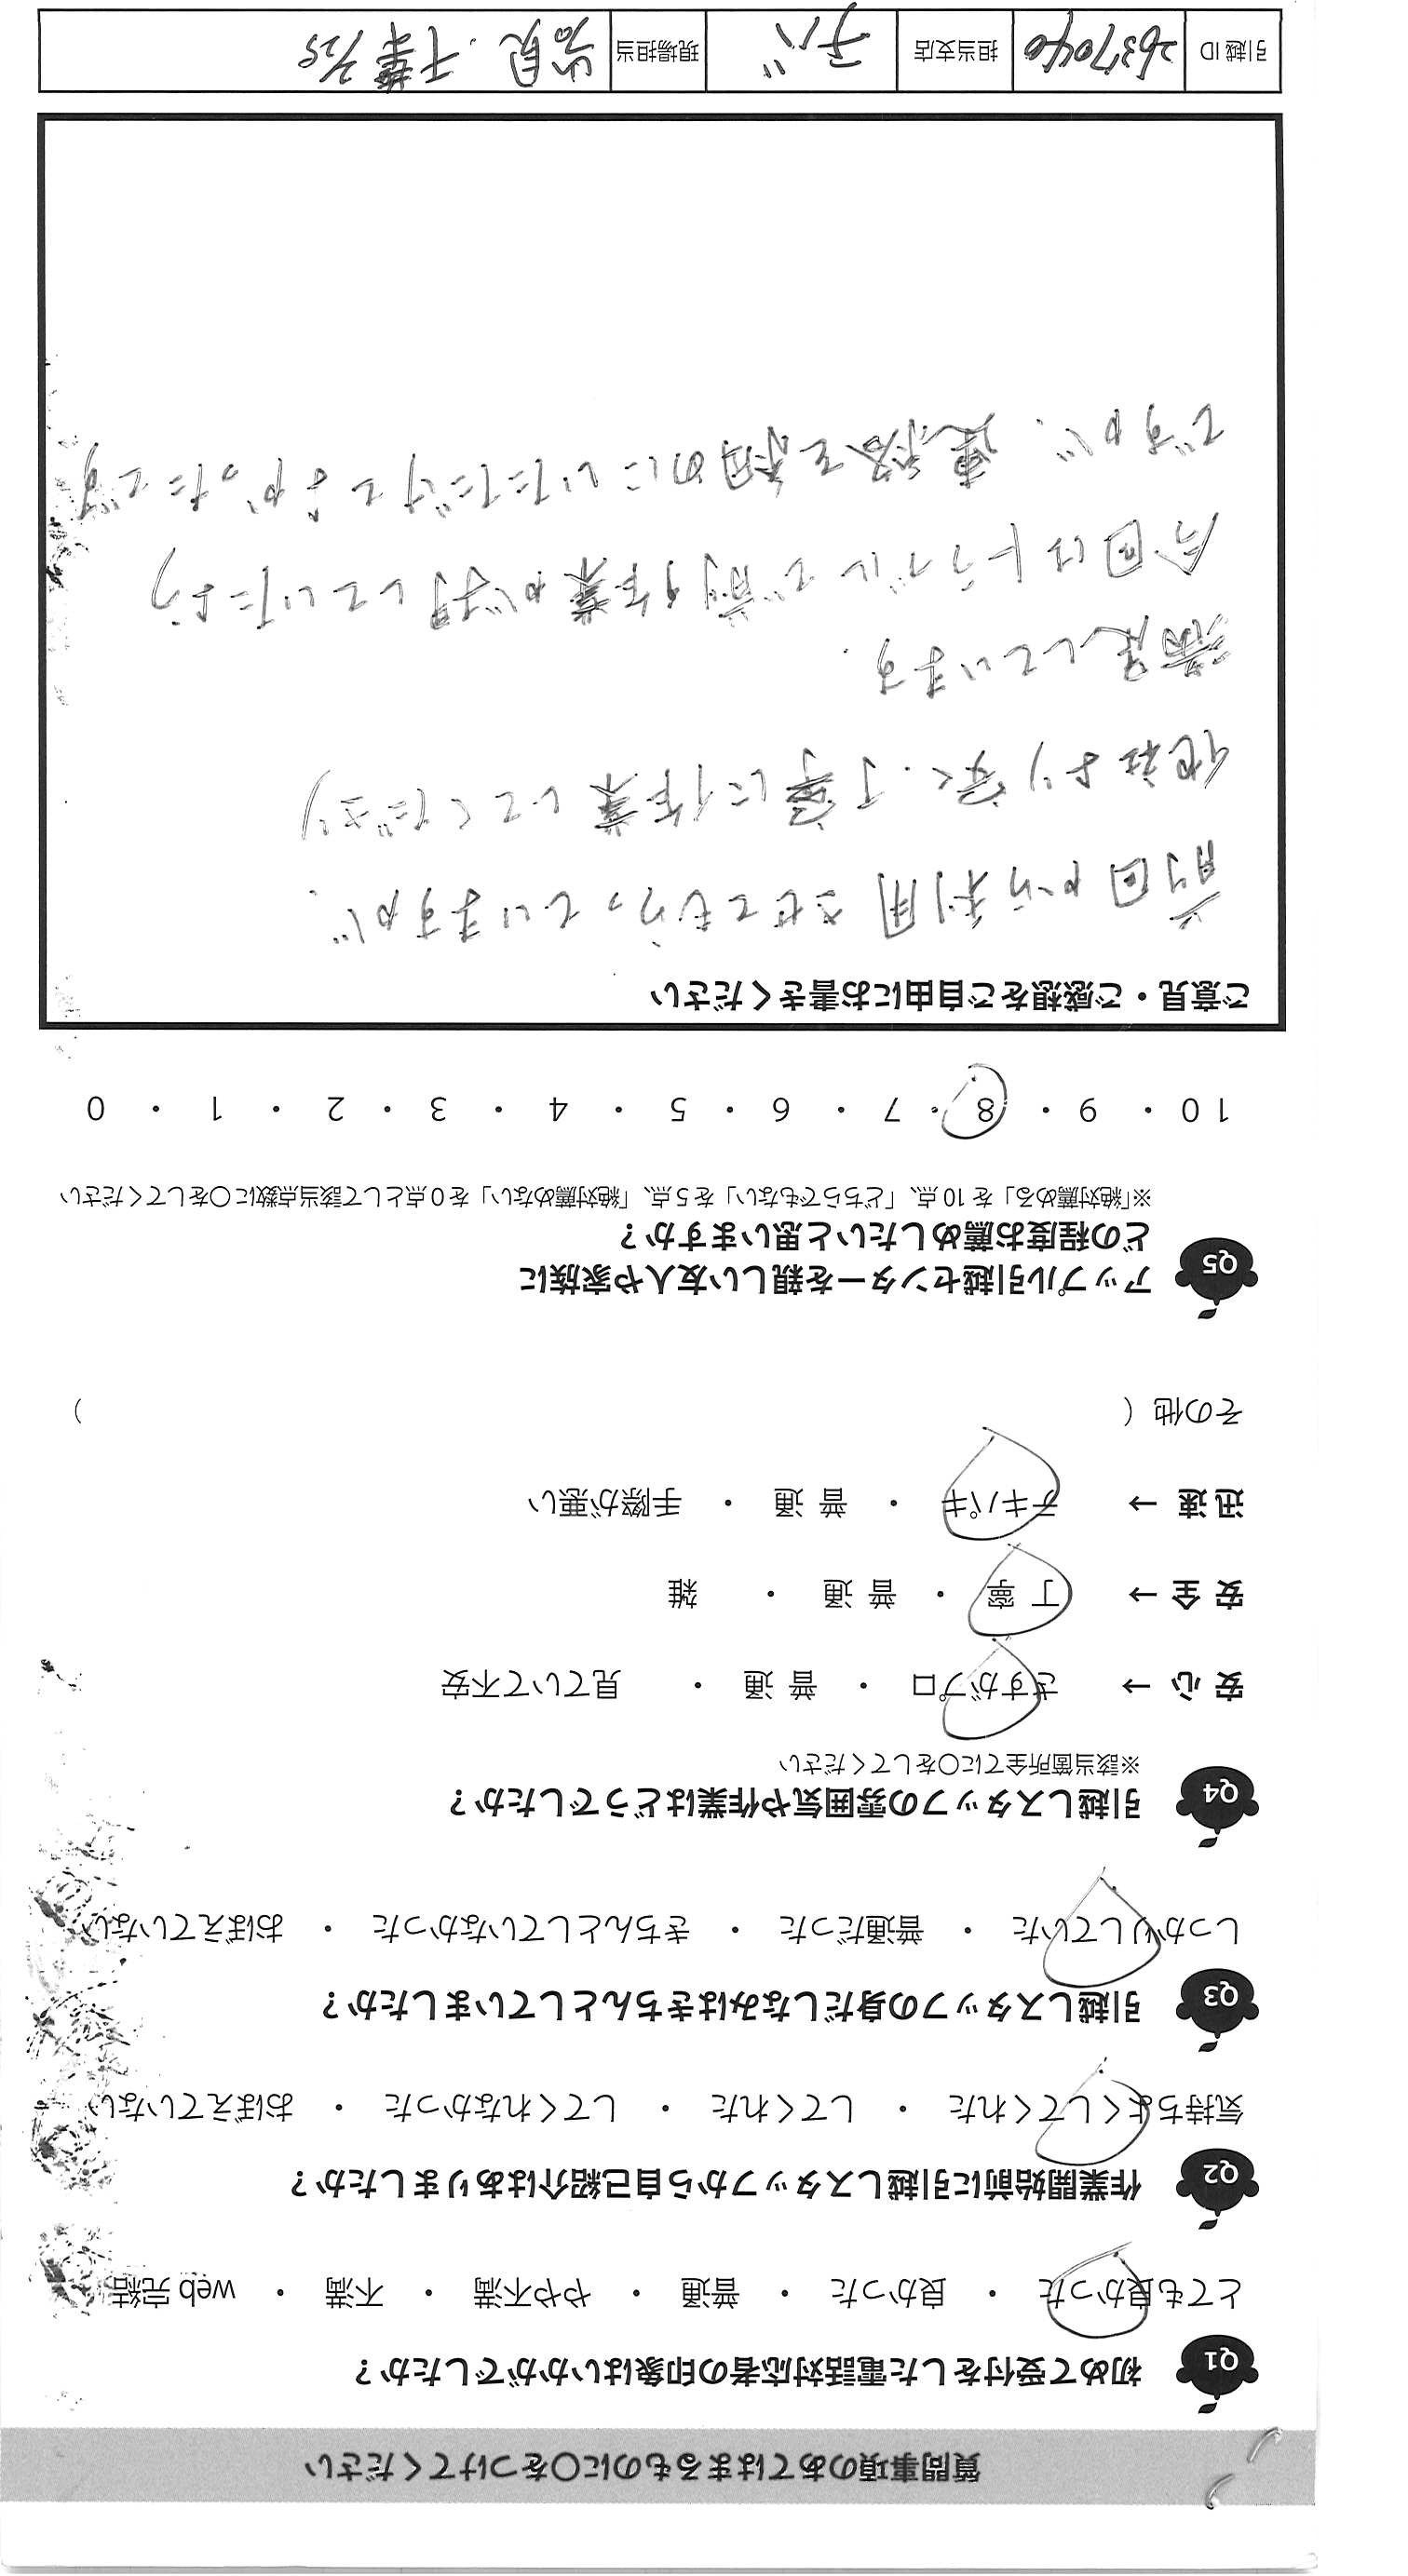 質問事項のあてはまるものに〇をつけてください
Q1 初めて受付をした電話対応者の印象はいかがでしたか？
とても良かった ・ 良かった ・ 普通 ・ やや不満 ・ 不満 ・ web完結
Q2 作業開始前に引越しスタッフから自己紹介はありましたか？
気持ちよくしてくれた ・ してくれた ・ してくれなかった ・ おぼえていない
Q3 引越しスタッフの身だしなみはきちんとしていましたか？
しっかりしていた ・ 普通だった ・ きちんとしていなかった ・ おぼえていない
Q4 引越しスタッフの雰囲気や作業はどうでしたか？
※該当箇所全てに〇をしてください
安心 → さすがプロ ・ 普通 ・ 見ていて不安
安全 → 丁寧 ・ 普通 ・ 雑
迅速 → テキパキ ・ 普通 ・ 手際が悪い
その他（ ）
Q5 アップル引越センターを親しい友人や家族に
どの程度お薦めしたいと思いますか？
※「絶対薦める」を10点、「どちらでもない」を5点、「絶対薦めない」を0点として該当点数に〇をしてください
10 ・ 9 ・ 8 ・ 7 ・ 6 ・ 5 ・ 4 ・ 3 ・ 2 ・ 1 ・ 0
ご意見・ご感想をご自由にお書きください
前回から利用させてもらっていますが、
他社より安く、丁寧に作業してくださり
満足しています.
今回はトラブルで前作業が押していたよう
ですが、連絡を細めにいただけてよかったです
引越ID 2637040 担当支店 チバ 現場担当 千葉